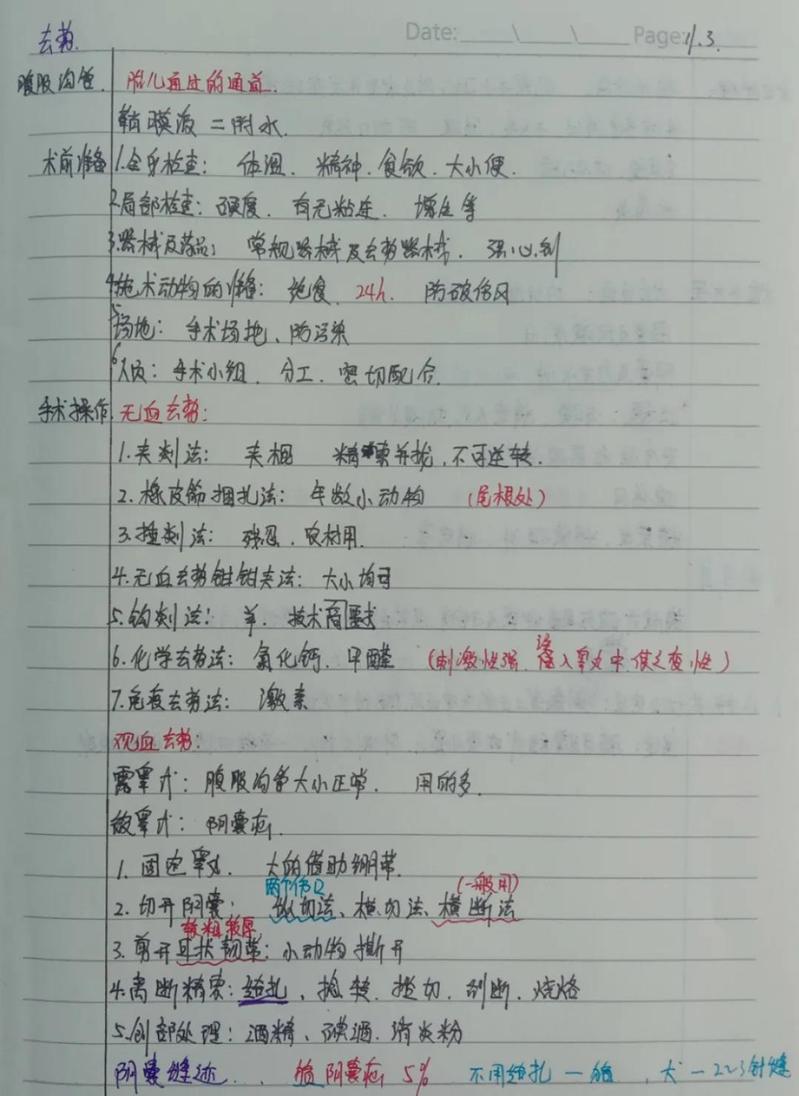 Date: Page: 1.3
去势.
腹股沟管 胎儿通过的通道.
鞘膜液 = 附水.
术前准备 1.全身检查: 体温. 精神. 食欲. 大小便.
2.局部检查: 硬度. 有无粘连. 增生等
3.器械及药品: 常规器械及去势器械. 强心剂
4.施术动物的准备: 绝食. 24h. 防破伤风
5.场地: 手术场地、防污染
6.人员: 手术小组. 分工. 密切配合.
手术操作 无血去势:
1.夹剁法: 夹棍 精索并拢,不可逆转.
2.橡皮筋捆扎法: 年数小动物 (尾根处)
3.捶剁法: 残忍. 农村用.
4.无血去势钳钳夹法: 大小均可
5.钩剁法: 羊. 技术高要求
6.化学去势法: 氯化钙. 甲醛 (刺激性强. 注入睾丸中.使之变性)
7.免疫去势法: 激素
观血去势:
露睾式: 腹股沟管大小正常. 用的多.
被睾式: 阴囊疝.
1.固定睾丸. 大的借助绷带.
两个伤口 (一般用)
2.切开阴囊: 纵切法、横切法、横断法
较粗较厚
3.剪开耳状韧带: 小动物撕开
4.离断精索: 结扎、捻转. 挫切. 刮断. 烧烙
5.创部处理: 酒精、碘酒. 消炎粉
阴囊缝迹. 阴囊疝 5% 不用结扎 一 猫 . 犬 一 2~3针缝